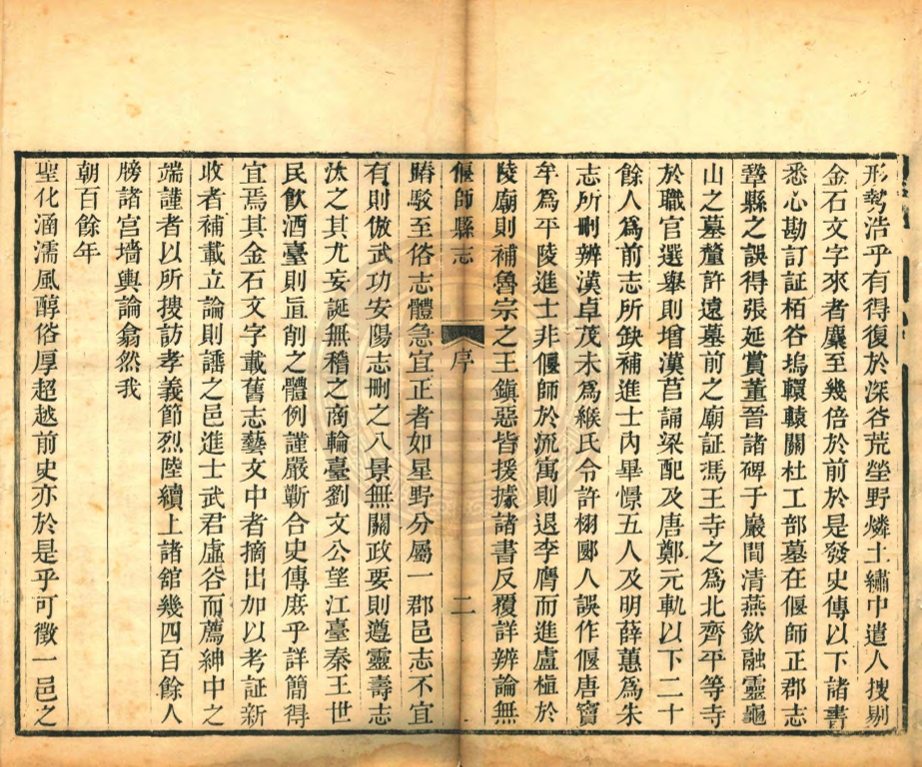 形勢浩乎有得復於深谷荒塋野燐土繡中遣人搜剔
金石文字來者麕至幾倍於前於是發史傳以下諸書
悉心勘訂証栢谷塢轘轅關杜工部墓在偃師正郡志
鞏縣之誤得張延賞董晉諸碑于巖間清燕欽融靈龜
山之墓釐許遠墓前之廟証馮王寺之為北齊平等寺
於職官選舉則增漢苢誦梁配及唐鄭元軌以下二十
餘人為前志所缺補進士內畢憬五人及明薛蕙為朱
志所刪辨漢卓茂未為緱氏令許栩郾人誤作偃唐竇
牟為平陵進士非偃師於流寓則退李膺而進盧植於
陵廟則補魯宗之王鎮惡皆援據諸書反覆詳辨論無
偃師縣志
序
二
踳駁至俗志體急宜正者如星野分屬一郡邑志不宜
有則倣武功安陽志刪之八景無關政要則遵靈壽志
汰之其尤妄誕無稽之商輪臺劉文公望江臺秦王世
民飲酒臺則亘削之體例謹嚴斬合史傳庶乎詳簡得
宜焉其金石文字載舊志藝文中者摘出加以考証新
收者補載立論則譒之邑進士武君虛谷而薦紳中之
端謹者以所搜訪孝義節烈陸續上諸舘幾四百餘人
牓諸宮墻輿論翕然我
朝百餘年
聖化涵濡風醇俗厚超越前史亦於是乎可徵一邑之